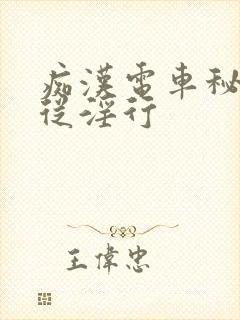 痴漢電車秘
從淫行
王偉忠